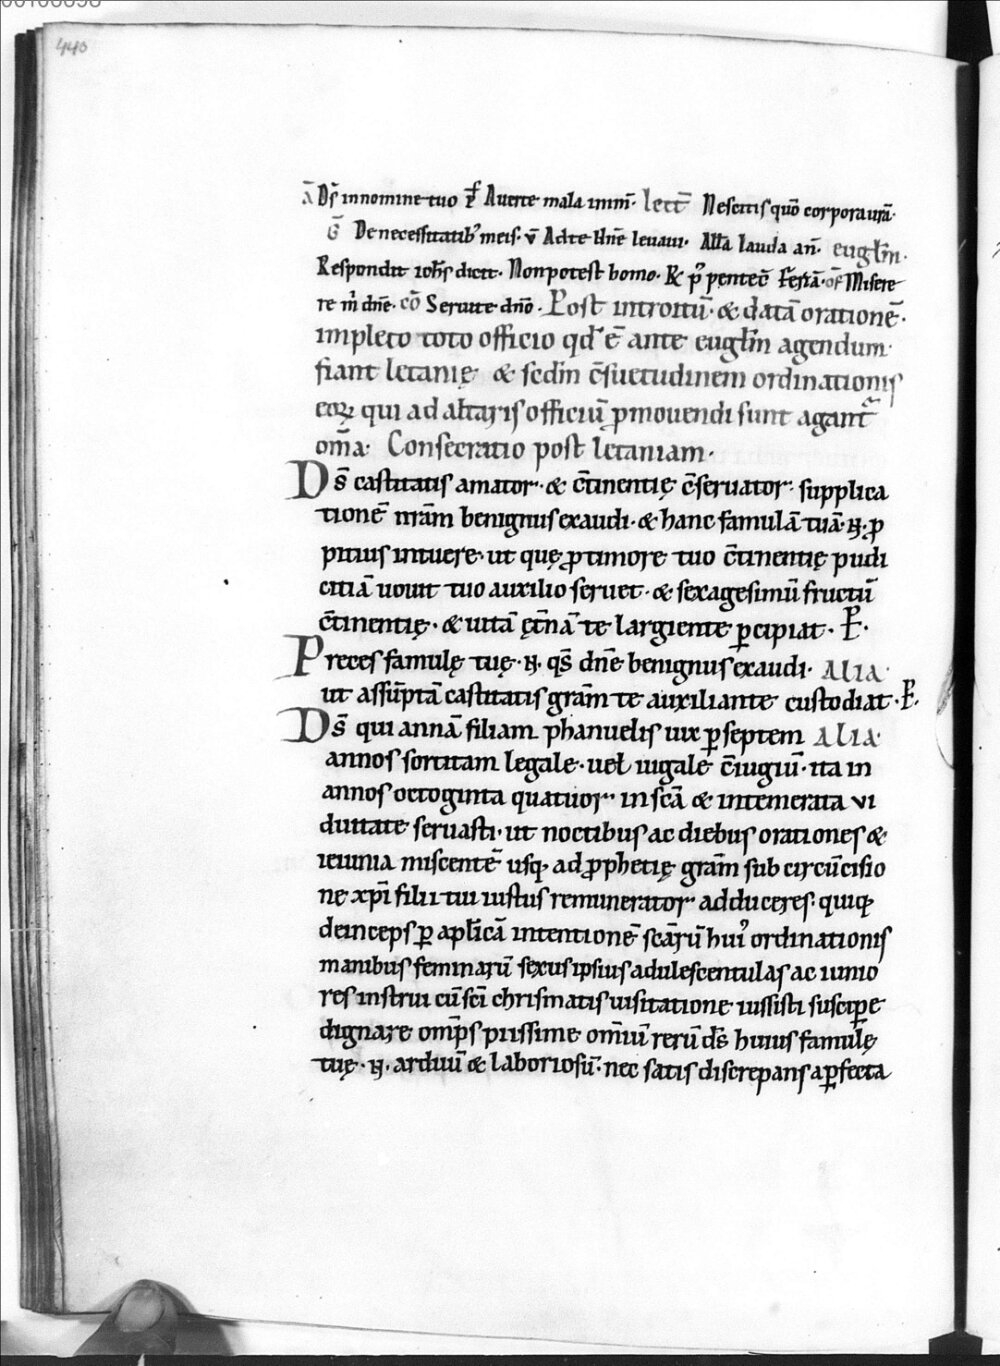 440
Ā Dś in nomine tuo ꝑ̄ Auerte mala inim̄· lect̄ Nescitis quō corpora urā·
Ḡ De necessitatib; meis· v̄ Ad te dn̄e leuaui· Alla lauda an̄· euglm̄·
Respondit ioh̄s dicit· Non potest homo· R p᷒ pentec̄ feriā· of̄ Misere
re m̄ dn̄e· cō Seruite dn̄o· Post introitū· & datā orationē·
impleto toto officio qd̄ ē ante euglm̄ agendum·
fiant letanię & scd̄m c̄suetudinem ordinationis
eoꝝ qui ad altaris officiū ꝓmouendi sunt agant᷑
om̄a· Consecratio post letaniam·
Ds̄ castitatis amator· & c̄tinentię c̄seruator· supplica
tionē nr̄am benignus exaudi· & hanc famulā tuā· N· ꝓ
pitius intuere· ut quę ꝓ timore tuo c̄tinentię pudi
citiā uouit tuo auxilio seruet· & sexagesimū fructū
c̄tinentię· & uitā ęt̄nā te largiente ꝑcipiat· P̄·
Preces famulę tuę· N· qs̄ dn̄e benignus exaudi· ALIA
ut assūptā castitatis grām te auxiliante custodiat· P̄·
Ds̄ qui annā filiam phanuelis uix ꝑ septem ALIA·
annos sortitam legale· uel iugalē c̄iugiū· ita in
annos octoginta quatuor· in scā & intemerata vi
duitate seruasti· ut noctibus ac diebus orationes &
ieiunia miscentē usq; ad ꝓphetię grām sub circūcisio
ne xpi filii tui iustus remunerator adduceres· quiq;
deinceps ꝑ aplicā intentionē scārū hui᷒ ordinationis
manibus feminarū sexus ipsius adulescentulas ac iunio
res instrui cū sci chrismatis uisitatione iussisti suscipe
dignare omp̄s piissime om̄iū rerū ds̄ huius famulę
tuę· N· arduū & laboriosū· nec satis discrepans a ꝑfecta